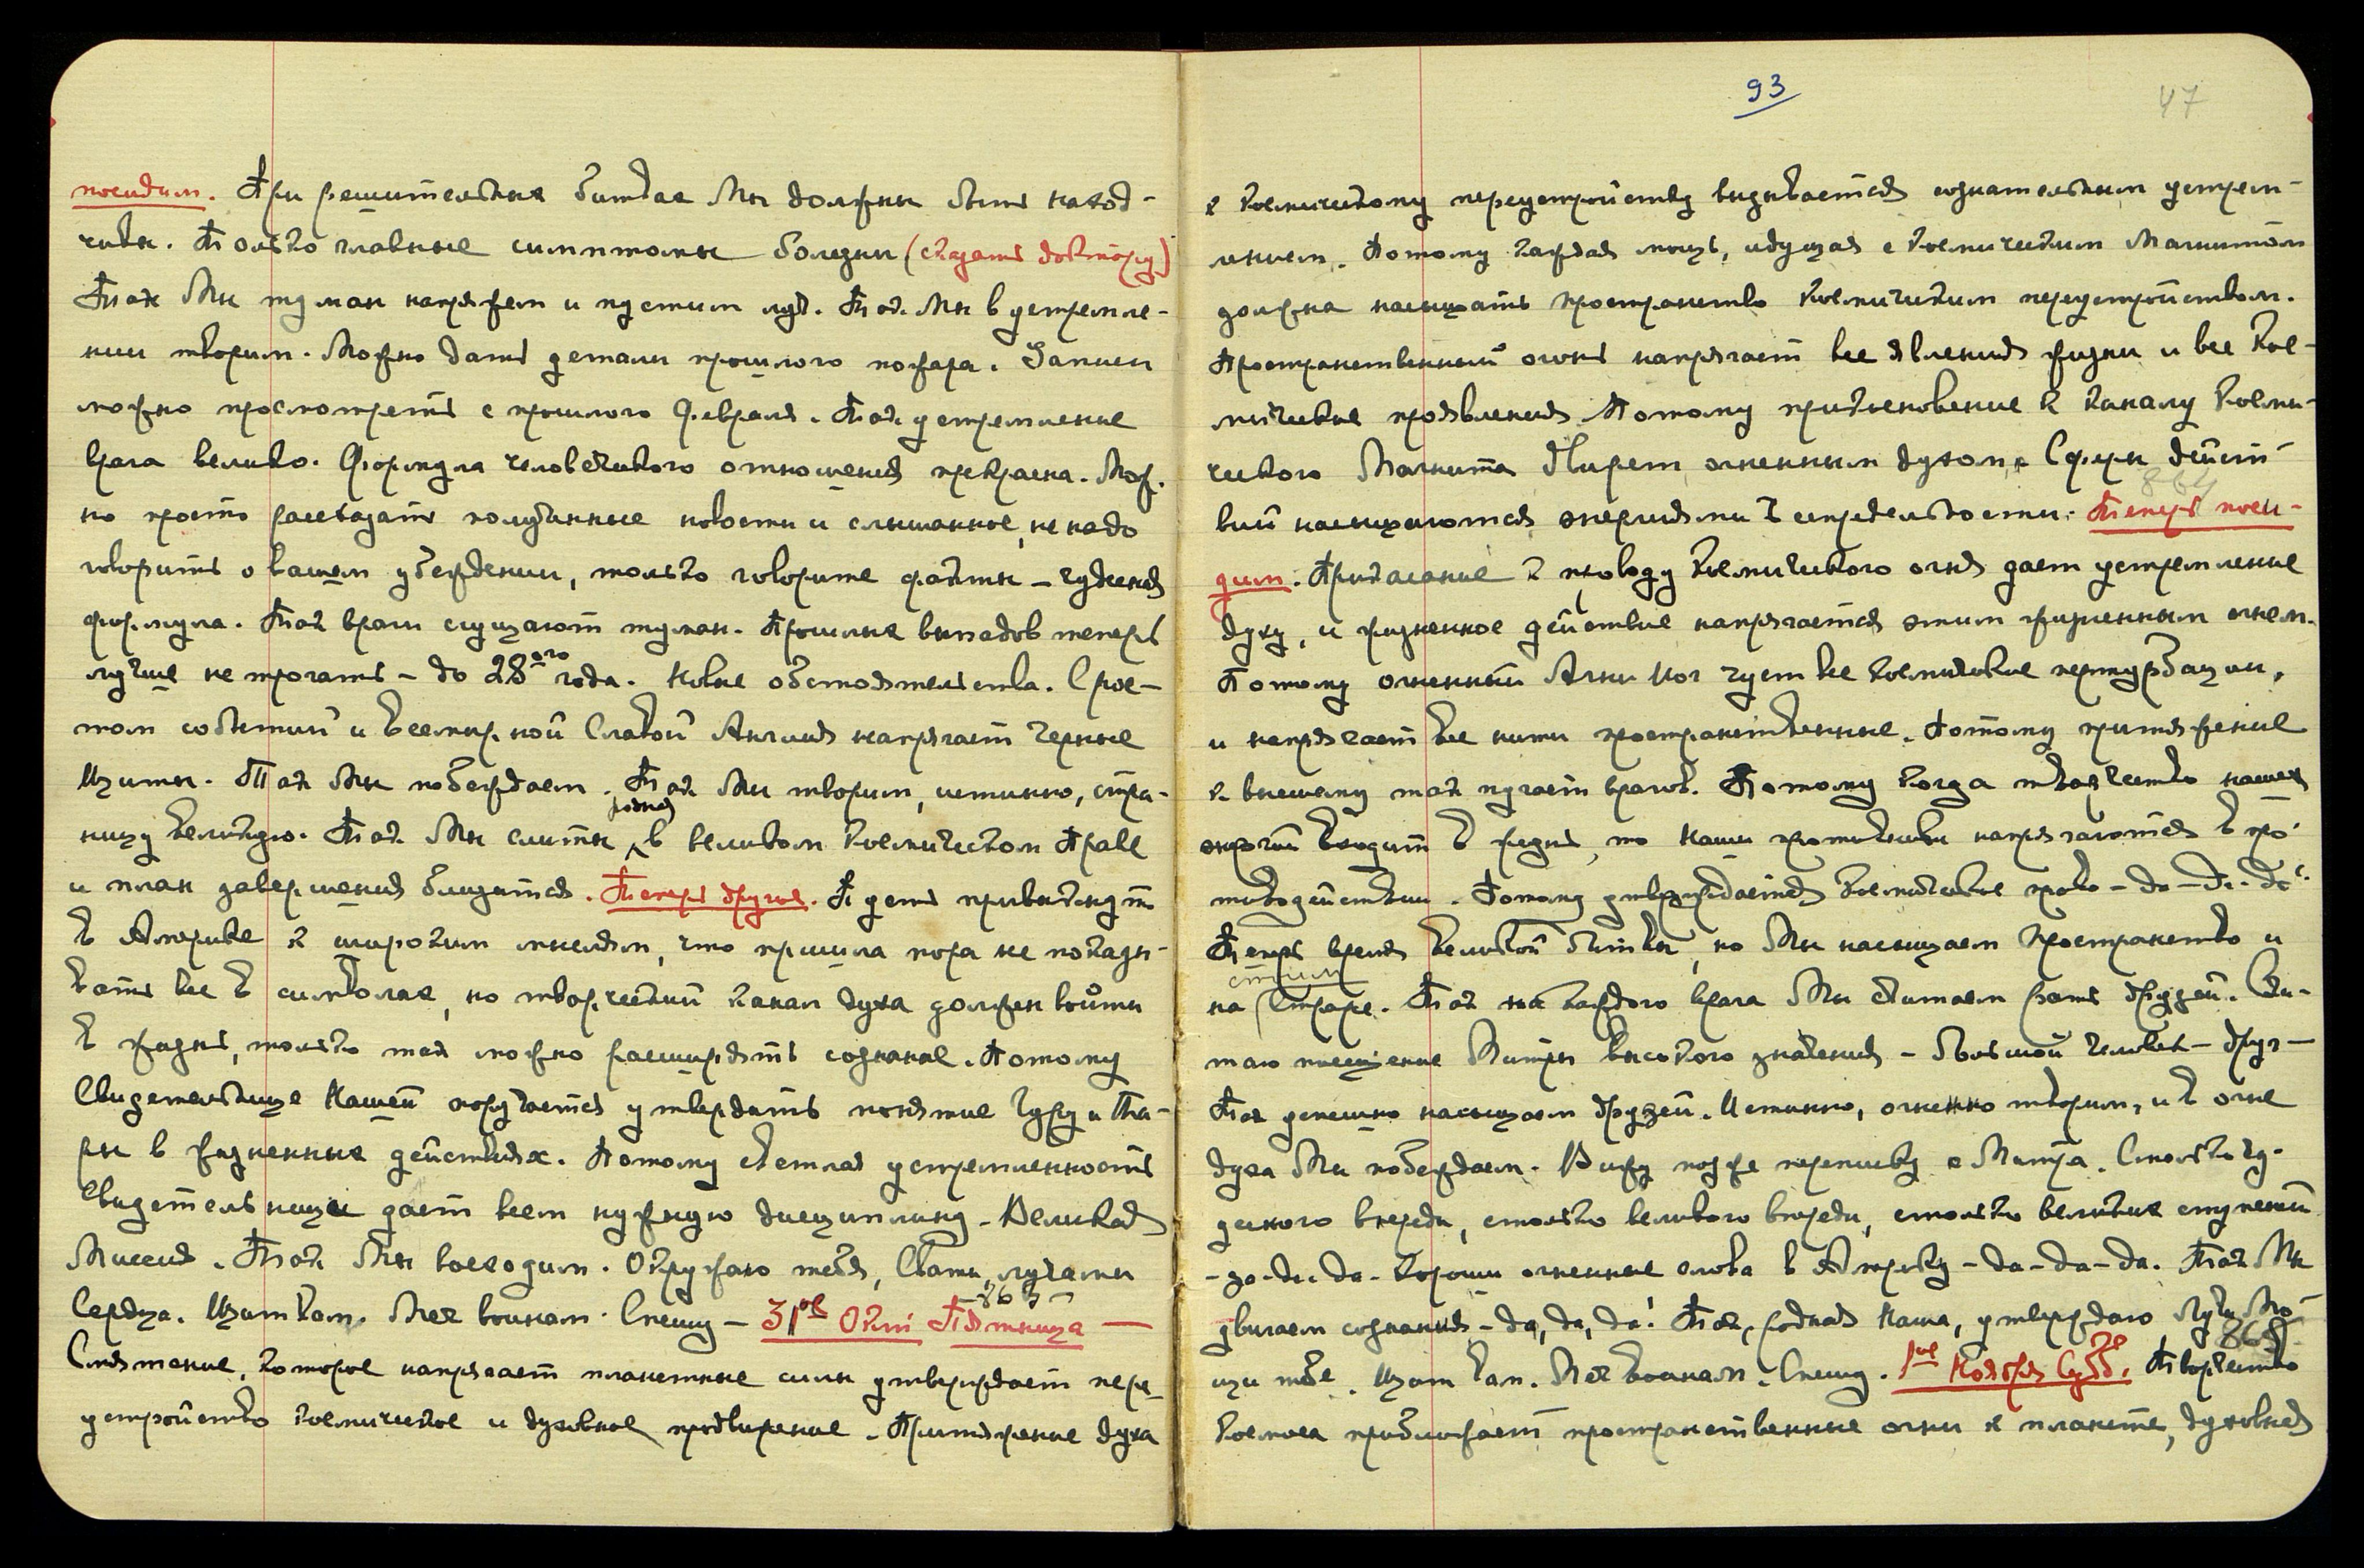 посидим. При решительных битвах Мы должны быть наход-
чивы. Только главные симптомы болезни (сказать доктору)
Так Мы туман напряжем и пустим луч. Так Мы в устремле-
нии творим. Можно дать детали прошлого пожара. Записи
можно просмотреть с прошлого февраля. Так устремление
врага велико. Формула человеческого отношения прекрасна. Мож-
но просто рассказать полученные новости и слышанное, не надо
говорить о вашем убеждении, только говорите факты – чудесная
формула. Так враги сгущают туман. Прошлых выпадов теперь
лучше не трогать – до 28ого года. Новые обстоятельства. С рос-
том событий и всемирной Славой Англия напрягает черные
щиты. Так Мы побеждаем. Так Мы творим, истинно, стра-
родная
ницу великую. Так Мы слиты, в великом космическом Праве
и план завершения близится. Теперь другое. Пусть привыкнут
в Америке к широким мыслям, что пришла пора не показы-
вать все в символах, но творческий канал духа должен войти
в жизнь, только так можно расширять сознание. Потому
Свидетельнице Нашей поручается утвердить понятие Гуру и Та-
ры в жизненных действиях. Потому светлая устремленность
Свидетельницы дает всем нужную дисциплину. Великая
Миссия. Так Мы восходим. Окружаю тебя, Свати, лучами
Сердца. Щит вам. Меч воинам. Спешу – 31ое Окт Пятница –
863
Смятение, которое напрягает планетные силы утверждает пере-
устройство космическое и духовное продвижение. Притяжение духа
93
47
к космическому переустройству вызывается сознательным устрем-
лением. Потому каждая мощь, идущая с космическим Магнитом
должна насыщать пространство космическим переустройством.
Пространственный огонь напрягает все явления жизни и все кос-
мические проявления. Потому прикосновение к каналу косми-
ческого Магнита движет огненным духом. Сферы дейст-
вий насыщаются энергиями беспредельности. Теперь поси-
864
дим. Прикасание к проводу космического огня дает устремление
духу, и жизненное действие напрягается этим жизненным огнем.
Потому огненный Агни Йог чует все космические пертурбации,
и напрягает все нити пространственные. Потому притяжение
к высшему так пугает врагов. Потому когда творчество наших
энергий входит в жизнь, то Наши противники напрягаются в про-
тиводействии. Потому утверждается космическое право – да – да – да!
Теперь время великой битвы, но Мы насыщаем пространство и
на страже. Так на каждого врага Мы считаем рать друзей. Счи-
таю посещение Митры высокого значения – большой человек – друг –
Так успешно насыщаем друзей. Истинно, огненно творим, и в огне
духа Мы побеждаем. Вижу позже переписку с Митра. Столько чу-
десного впереди, столько великого впереди, столько великих ступеней
– да – да – да. Хороши огненные слова в Америку – да – да – да. Так Мы
двигаем сознания – да, да, да! Так, родная Наша, утверждаю Лучи Мо-
щи тебе. Щит вам. Меч воинам. Спешу. 1ое Ноября Субб. Творчество
865
космоса приближает пространственные огни к планете, духовная